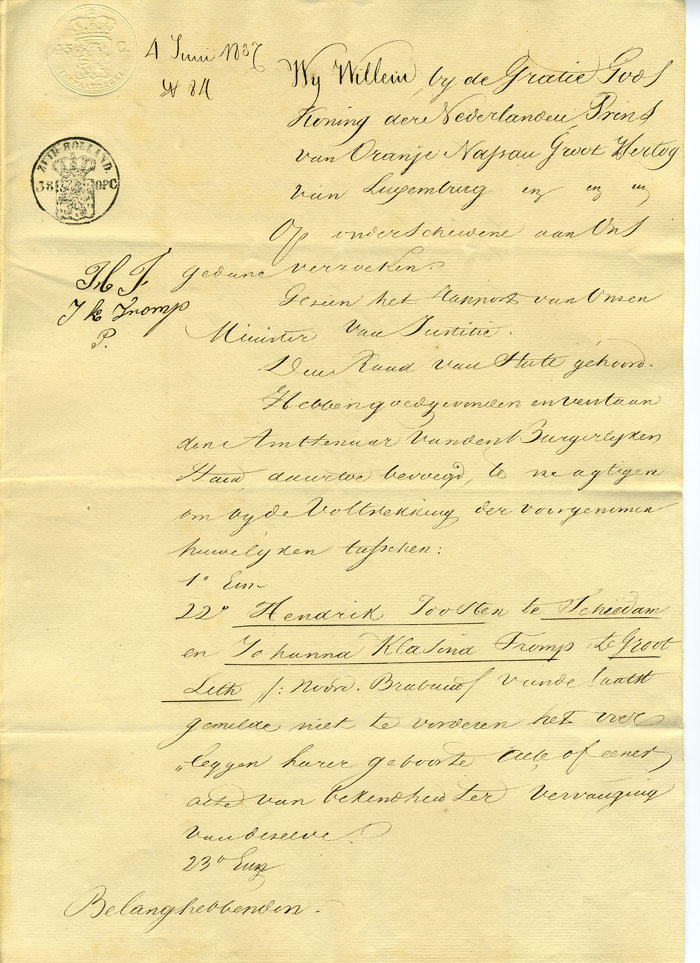 45 C.
4 Junij 1837
N 84
ZUID HOLLAND.
38 OPC
Wij Willem bij de Gratie Gods
Koning der Nederlanden Prins
van Oranje Nassau Groot Hertog
van Luxemburg enz enz enz
Op onderscheidene aan Ons
gedane verzoeken.
Gezien het Rapport van Onzen
Minister Van Justitie.
Den Raad van State gehoord.
Hebben goedgevonden en verstaan
den Ambtenaar Van den Burgerlyken
Staat, daartoe bevoegd, te magtigen
om by de Voltrekking der voorgenomen
huwelijken tusschen:
1º Enz
22º Hendrik Joosten te Schiedam
en Johanna Klasina Tromp te Groot
Lith /: Noord. Braband van de laatst
gemelde niet te vorderen het over
„leggen harer geboorte acte of eener
acte van bekendheid ter vervanging
van dezelve.
23º Enz
Belanghebbenden.
J k Tromp
P.